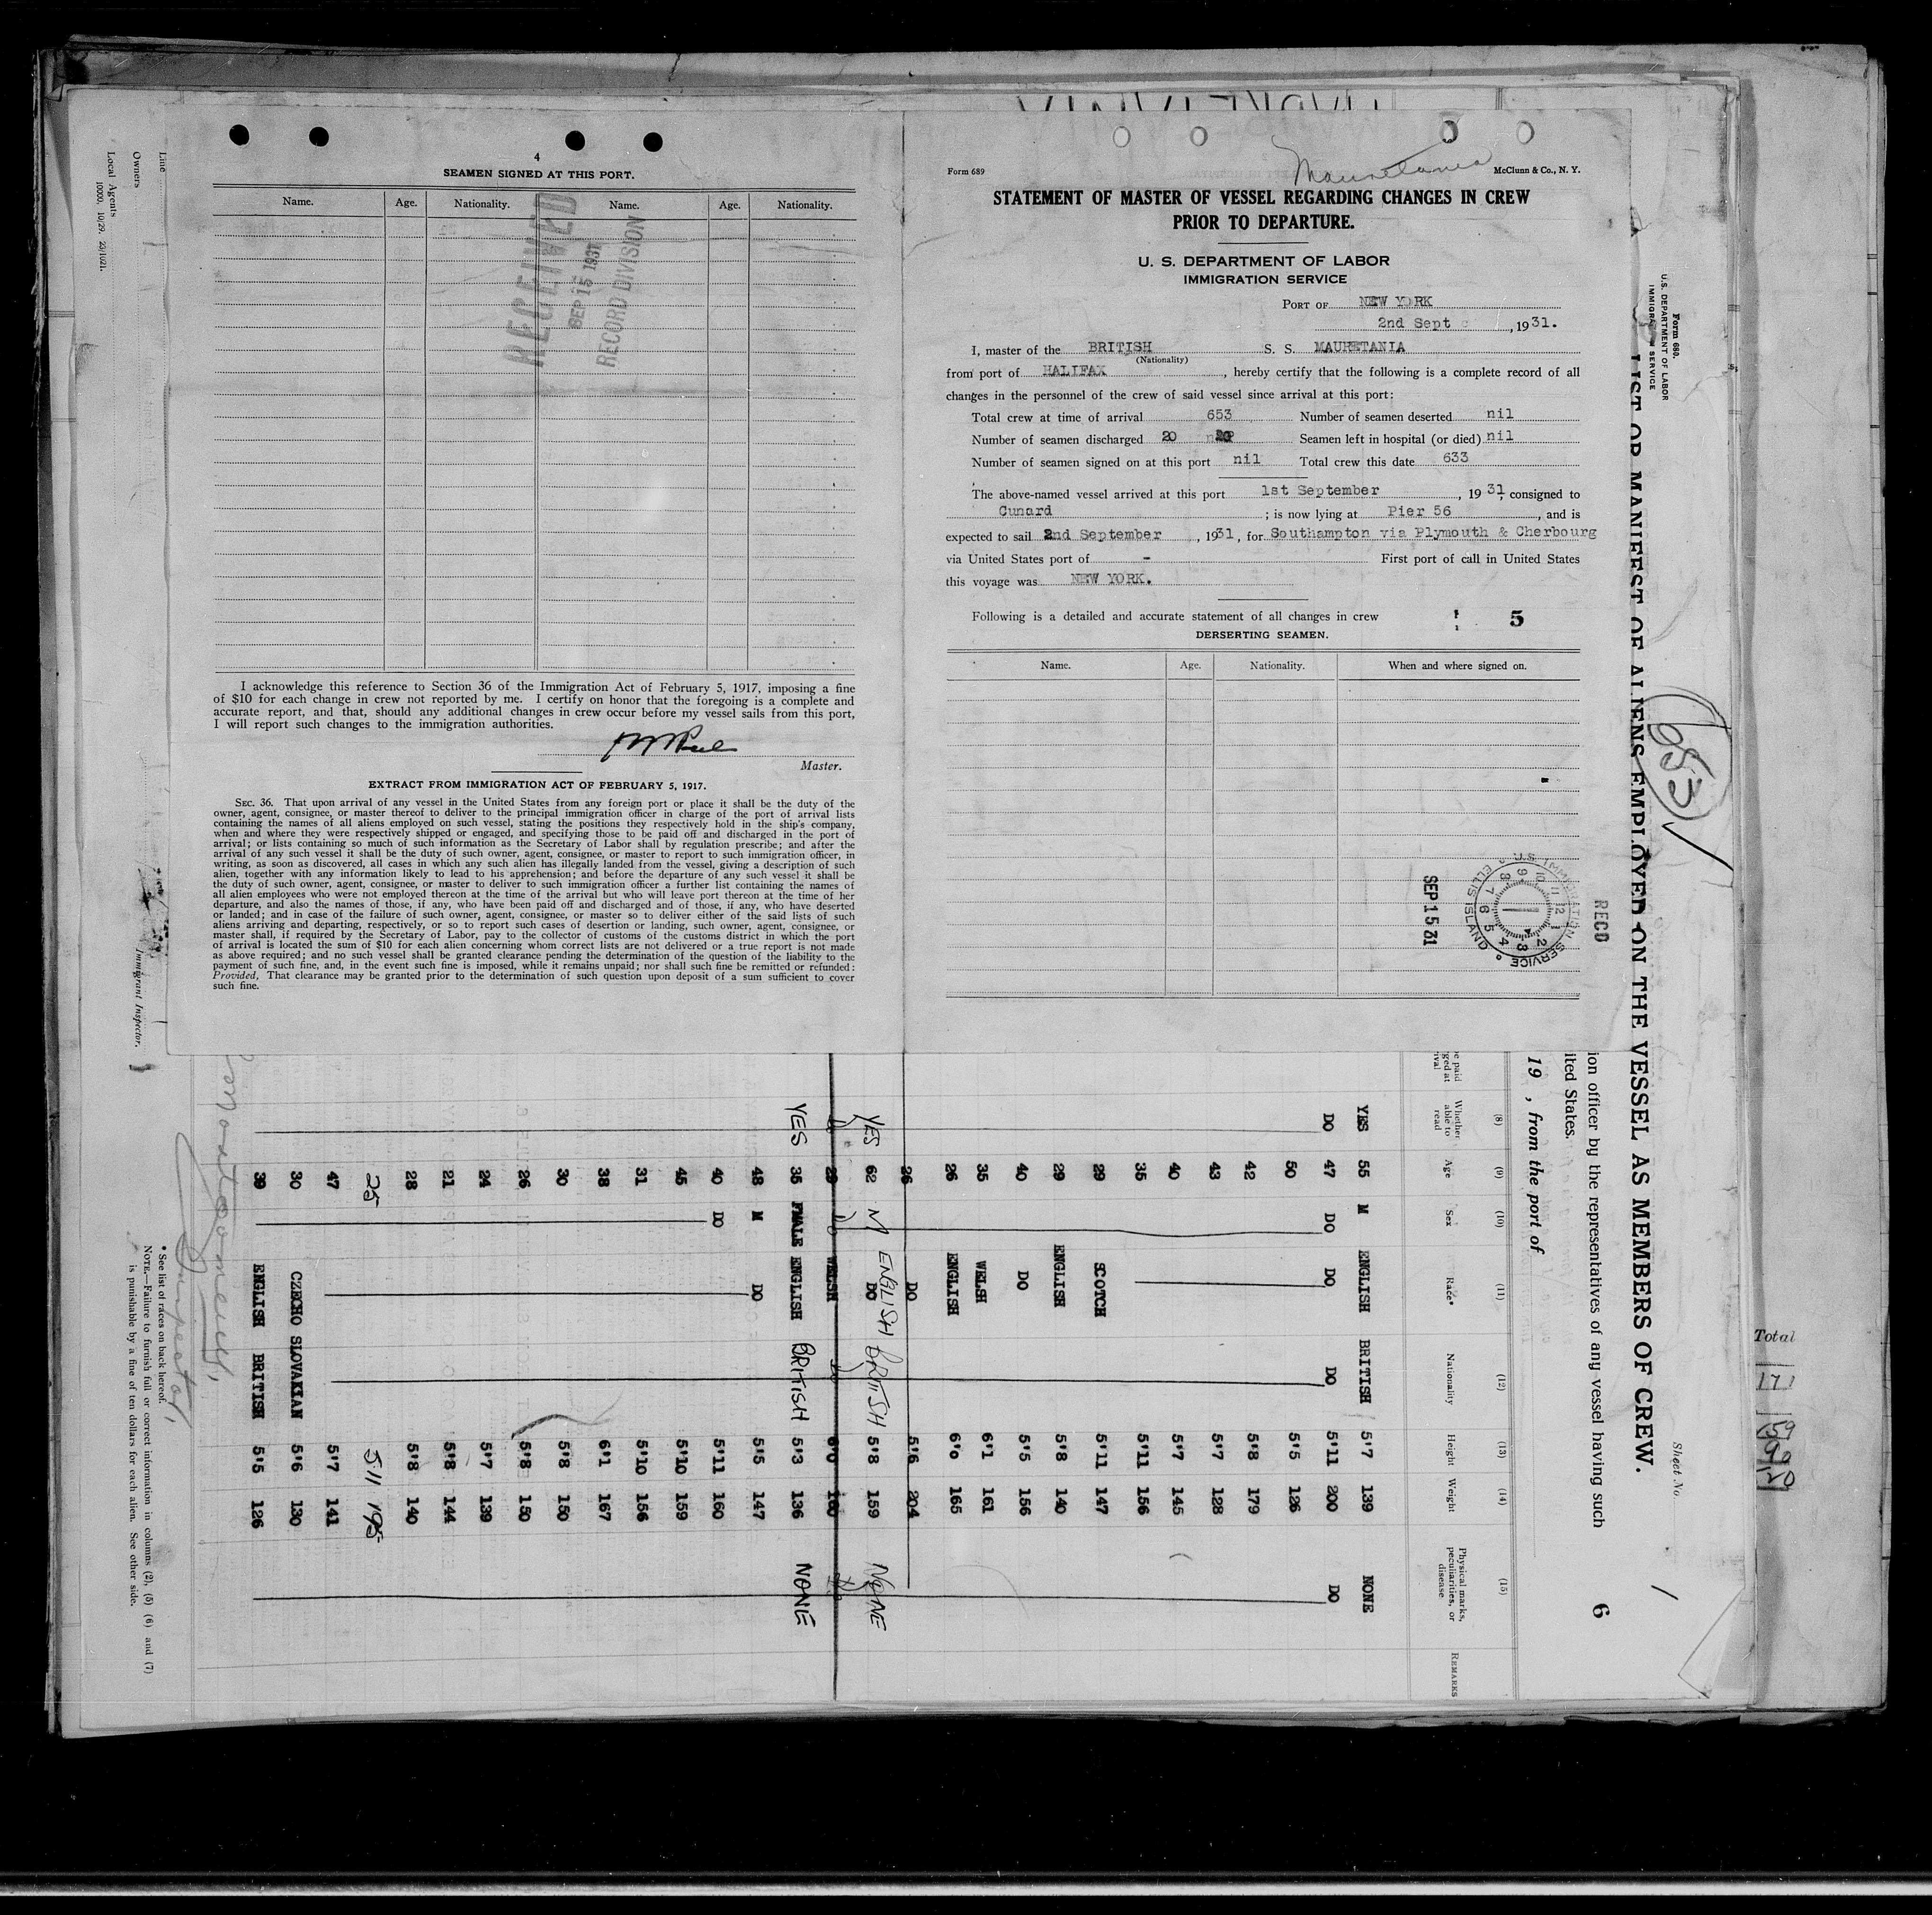 4
SEAMEN SIGNED AT THIS PORT.
Name. Age. Nationality. Name. Age. Nationality.
RECEIVED
SEP 15 1931
RECORD DIVISION
I acknowledge this reference to Section 36 of the Immigration Act of February 5, 1917, imposing a fine
of $10 for each change in crew not reported by me. I certify on honor that the foregoing is a complete and
accurate report, and that, should any additional changes in crew occur before my vessel sails from this port,
I will report such changes to the immigration authorities.
Master.
EXTRACT FROM IMMIGRATION ACT OF FEBRUARY 5, 1917.
SEC. 36. That upon arrival of any vessel in the United States from any foreign port or place it shall be the duty of the
owner, agent, consignee, or master thereof to deliver to the principal immigration officer in charge of the port of arrival lists
containing the names of all aliens employed on such vessel, stating the positions they respectively hold in the ship's company,
when and where they were respectively shipped or engaged, and specifying those to be paid off and discharged in the port of
arrival; or lists containing so much of such information as the Secretary of Labor shall by regulation prescribe; and after the
arrival of any such vessel it shall be the duty of such owner, agent, consignee, or master to report to such immigration officer, in
writing, as soon as discovered, all cases in which any such alien has illegally landed from the vessel, giving a description of such
alien, together with any information likely to lead to his apprehension; and before the departure of any such vessel it shall be
the duty of such owner, agent, consignee, or master to deliver to such immigration officer a further list containing the names of
all alien employees who were not employed thereon at the time of the arrival but who will leave port thereon at the time of her
departure, and also the names of those, if any, who have been paid off and discharged and of those, if any, who have deserted
or landed; and in case of the failure of such owner, agent, consignee, or master so to deliver either of the said lists of such
aliens arriving and departing, respectively, or so to report such cases of desertion or landing, such owner, agent, consignee, or
master shall, if required by the Secretary of Labor, pay to the collector of customs of the customs district in which the port
of arrival is located the sum of $10 for each alien concerning whom correct lists are not delivered or a true report is not made
as above required; and no such vessel shall be granted clearance pending the determination of the question of the liability to the
payment of such fine, and, in the event such fine is imposed, while it remains unpaid; nor shall such fine be remitted or refunded:
Provided, That clearance may be granted prior to the determination of such question upon deposit of a sum sufficient to cover
such fine.
Form 689 Mauretania McClunn & Co., N. Y.
STATEMENT OF MASTER OF VESSEL REGARDING CHANGES IN CREW
PRIOR TO DEPARTURE.
U. S. DEPARTMENT OF LABOR
IMMIGRATION SERVICE
PORT OF NEW YORK
2nd Sept , 1931.
I, master of the BRITISH S. S. MAURETANIA
(Nationality)
from port of HALIFAX , hereby certify that the following is a complete record of all
changes in the personnel of the crew of said vessel since arrival at this port:
Total crew at time of arrival 653 Number of seamen deserted nil
Number of seamen discharged 20 Seamen left in hospital (or died) nil
Number of seamen signed on at this port nil Total crew this date 633
The above-named vessel arrived at this port 1st September , 19 31, consigned to
Cunard ; is now lying at Pier 56 , and is
expected to sail 2nd September , 1931, for Southampton via Plymouth & Cherbourg
via United States port of - First port of call in United States
this voyage was NEW YORK.
Following is a detailed and accurate statement of all changes in crew 5
DERSERTING SEAMEN.
Name. Age. Nationality. When and where signed on.
U.S. IMMIGRATION SERVICE ELLIS ISLAND
RECD
SEP 15 31
Form 680.
U.S. DEPARTMENT OF LABOR
IMMIGRATION SERVICE
LIST OR MANIFEST OF ALIENS EMPLOYED ON THE VESSEL AS MEMBERS OF CREW.
653
Sheet No. 1
6
ion officer by the representatives of any vessel having such
ited States.
19 , from the port of
(8) (9) (10) (11) (12) (13) (14) (15)
Whether able to read Age Sex Race* Nationality Height Weight Physical marks, peculiarities, or disease REMARKS
YES 55 M ENGLISH BRITISH 5'7 139 NONE
DO 47 DO DO DO 5'11 200 DO
50 5'5 126
42 5'8 179
43 5'7 128
40 5'7 145
35 5'11 156
29 SCOTCH 5'11 147
29 ENGLISH 5'8 140
40 DO 5'5 156
35 WELSH 6'1 161
26 ENGLISH 6'0 165
26 DO 5'6 204
YES 62 M ENGLISH DO BRITISH 5'8 159 NONE
WELSH
YES 35 FMALE ENGLISH BRITISH 5'3 136 NONE
48 M DO 5'5 147
40 DO 5'11 160
45 5'10 159
31 5'10 156
38 6'1 167
30 5'8 150
26 5'8 150
24 5'7 139
21 5'8 144
28 5'8 140
25 5'11 195
47 5'7 141
30 CZECHO SLOVAKIAN 5'6 130
39 ENGLISH BRITISH 5'5 126
Inspector,
* See list of races on back hereof.
NOTE.—Failure to furnish full or correct information in columns (2), (5) (6) and (7)
is punishable by a fine of ten dollars for each alien. See other side.
Line
Owners
Local Agents
10000. 10/29. 23/1021.
Immigrant Inspector.
Total
171